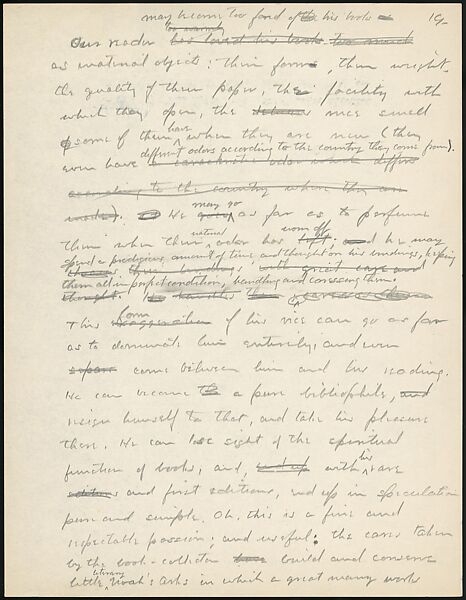 may become too fond of his books 19-
Our reader has loved his books too much
as material objects: their forms, their weight,
the quality of their paper, the facility with
which they open, the nice smell
some of them have when they are new (they
different odors according to the country they come from).
even have a characteristic odor which differs
according to the country where they are
made). He may go as far as to perfume
natural worn off
them when their odor has left, and he may
spend a prodigious amount of time and thought on his bindings, keeping
them all in perfect condition, handling and caressing them.
thought.
form
This exaggeration of his vice can go as far
as to dominate him entirely, and even
come between him and his reading.
He can become a pure bibliophile, and
resign himself to that, and take his pleasure
there. He can lose sight of the spiritual
function of books, and, end up with his rare
editions and first editions, end up in speculation
pure and simple. Oh, this is a fine and
respectable passion; and useful: the cares taken
by the book-collector build and conserve
literary
little Noah's Arks in which a great many works